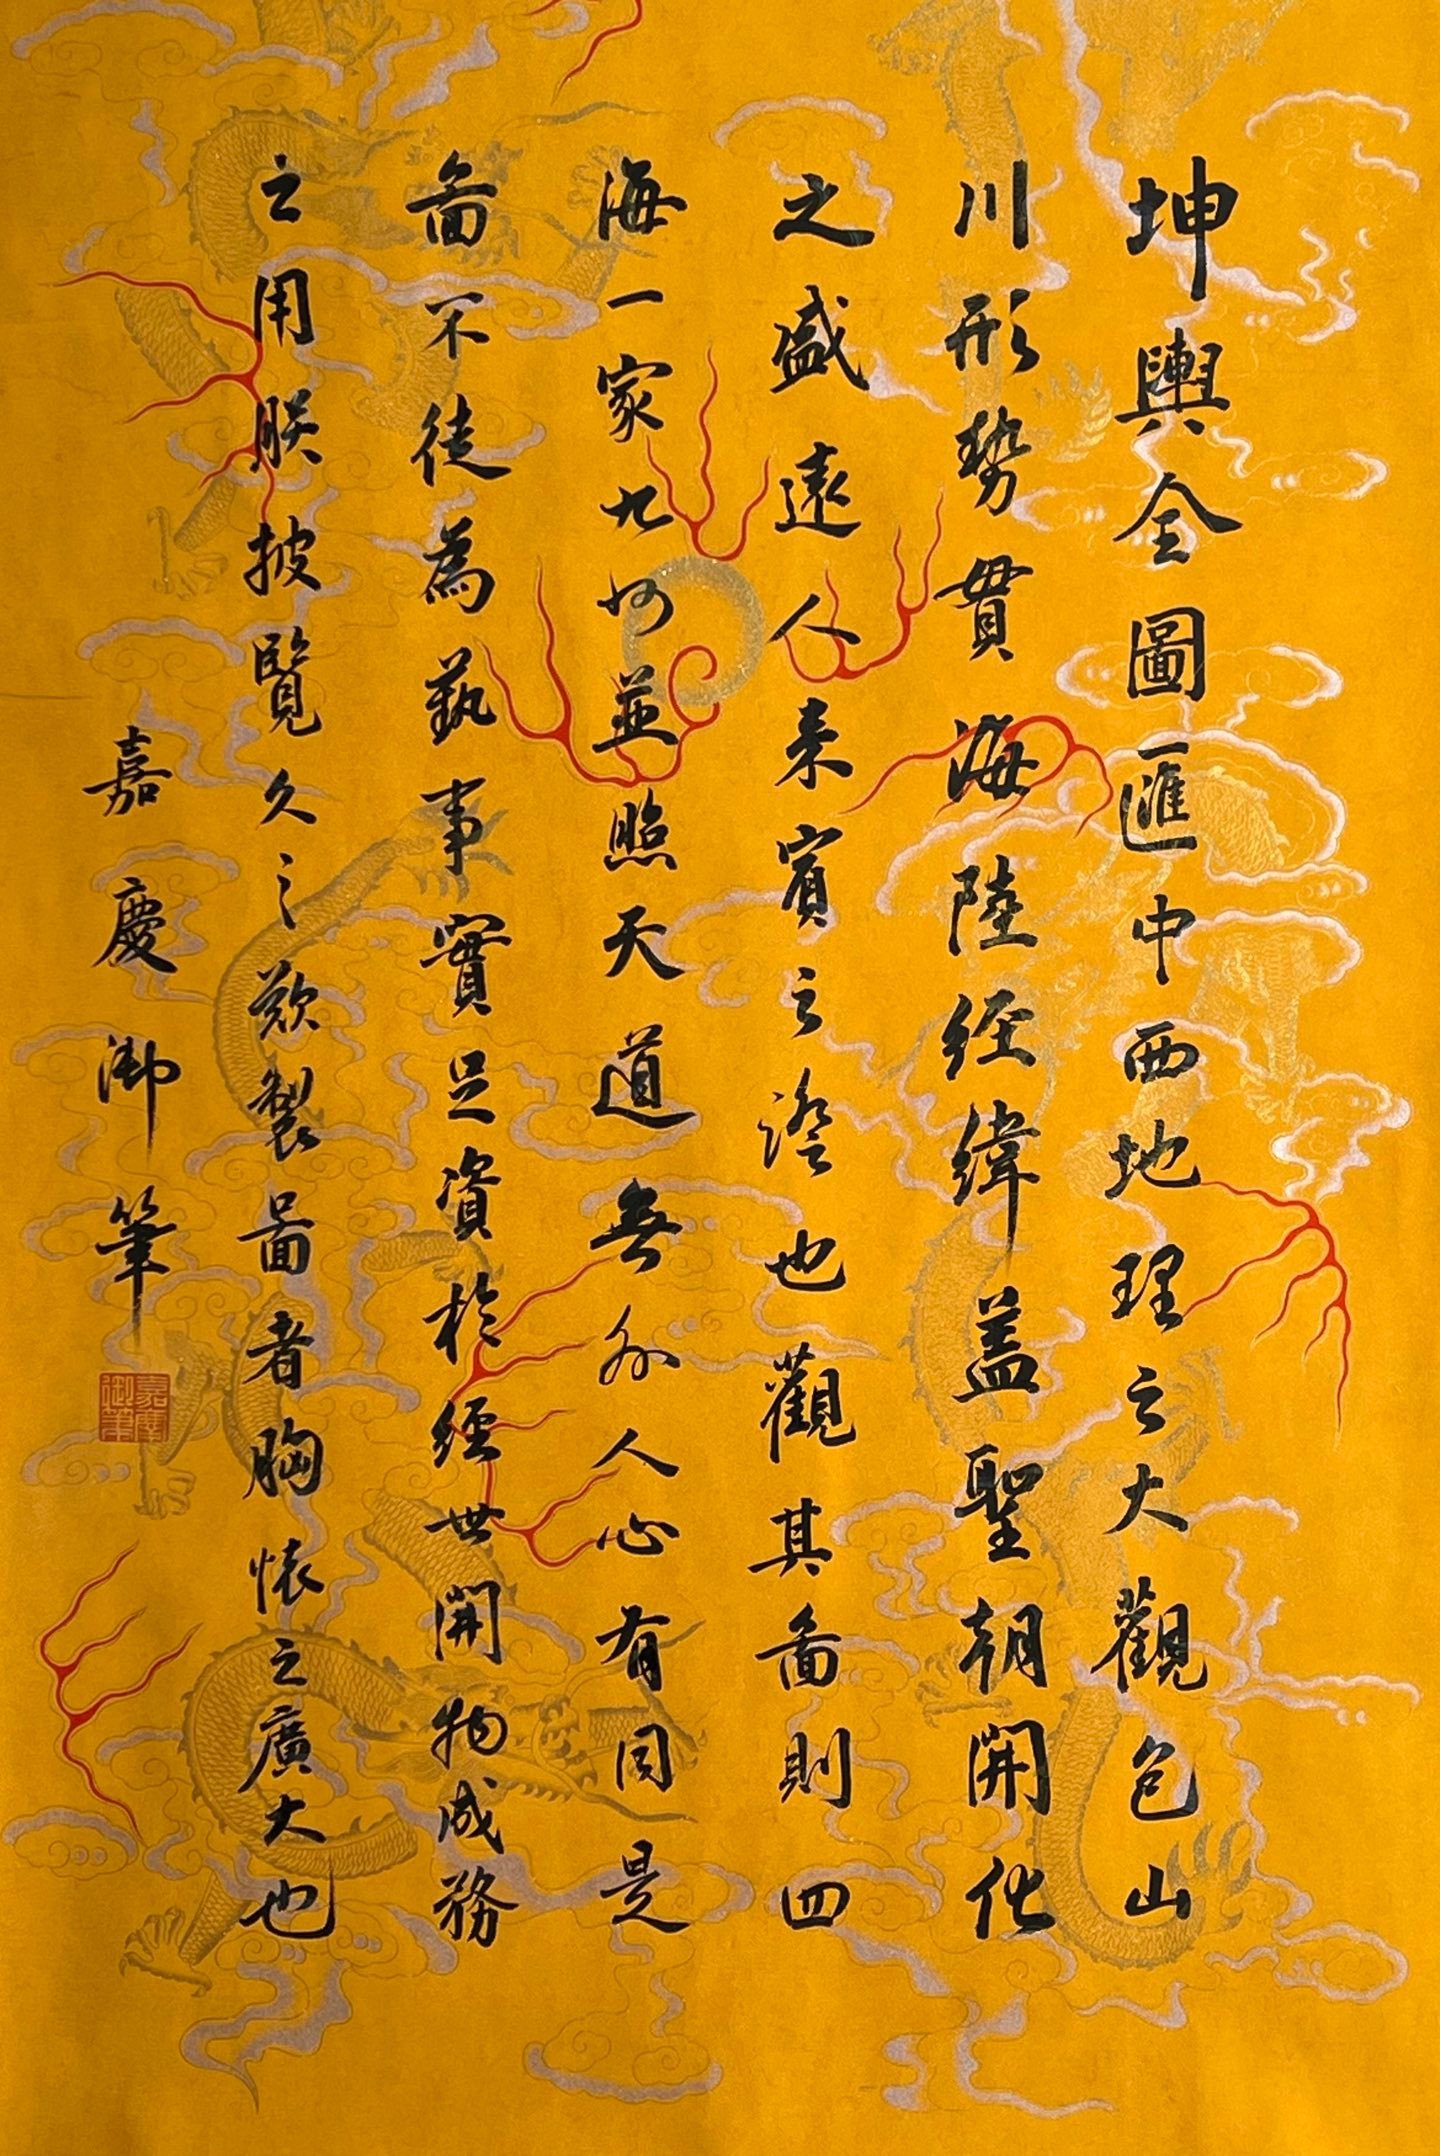 坤輿全圖匯中西地理之大觀包山
川形势貫海陸経緯盖聖朝開化
之盛遠人来賓之證也觀其啚則四
海一家九州並照天道無外人心有同是
啚不徒為藝事實足資於經世開物成務
之用朕披覽久之歎製啚者胸懐之廣大也
嘉慶御筆
嘉慶御筆